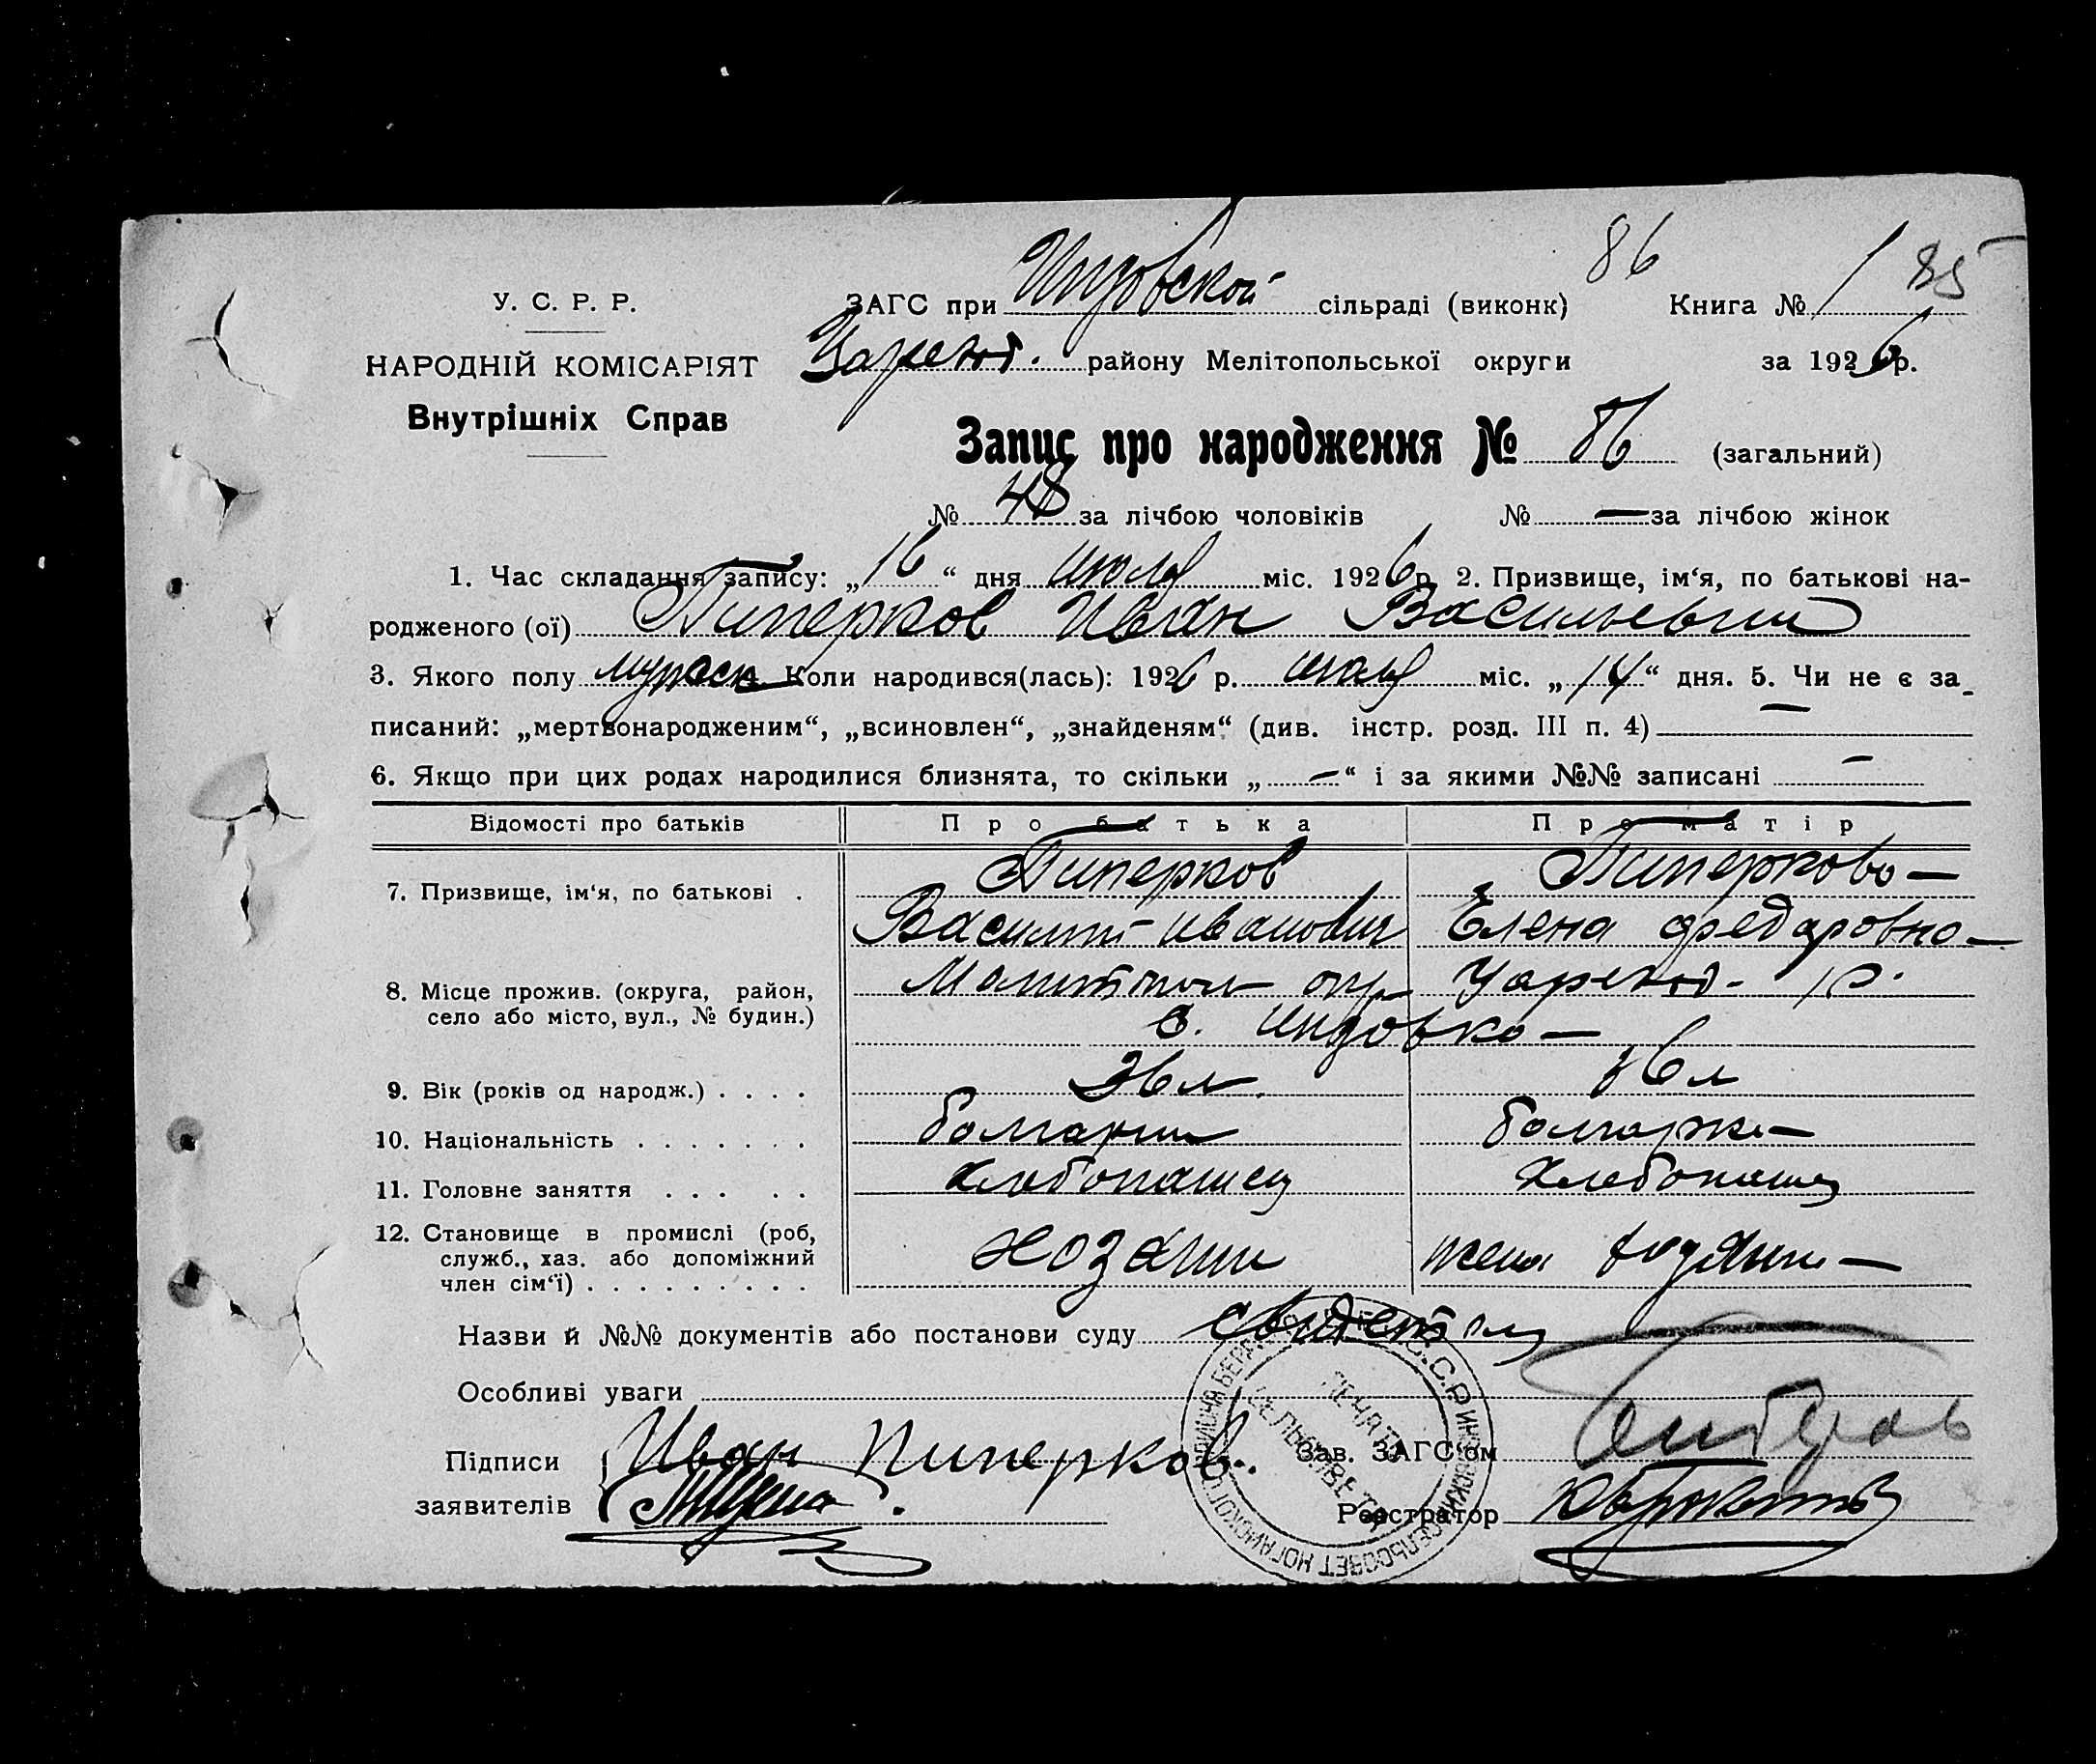 86
85
У. С. Р. Р.
ЗАГС при Инзовской сільраді (виконк) Книга № 1
НАРОДНІЙ КОМІСАРІЯТ
Внутрішніх Справ
району Мелітопольської округи за 1926 р.
Запис про народження № 86 (загальний)
№ 48 за лічбою чоловіків № — за лічбою жінок
1. Час складання запису: „16“ дня июля міс. 1926 р. 2. Призвище, ім‘я, по батькові на-
родженого (ої) Пиперков Иван Васильевич
3. Якого полу мужск 4. Коли народився(лась): 1926 р. июля міс. „14“ дня. 5. Чи не є за-
писаний: „мертвонародженим“, „всиновлен“, „знайденям“ (див. інстр. розд. III п. 4) —
6. Якщо при цих родах народилися близнята, то скільки „—“ і за якими №№ записані —
Відомості про батьків Про батька Про матір
7. Призвище, ім‘я, по батькові . Пиперков Пиперкова
Василий Иванович Елена Федаровна
8. Місце прожив. (округа, район, село або місто, вул., № будин.) окр р.
с. Инзовка
9. Вік (років од народж.) . . . . 36 л. 36 л
10. Національність . . . . . . . болгарин болгарка
11. Головне заняття . . . . . хлебопашец хлебопашец
12. Становище в промислі (роб,
служб., хаз. або допоміжний
член сім‘ї) . . . . . . . . . хозяин жена хозяина
Назви й №№ документів або постанови суду
Особливі уваги
Підписи Иван Пиперков. Зав. ЗАГС‘ом
заявителів Реєстратор
ПЕЧАТЬ
СЕЛЬСОВЕТА